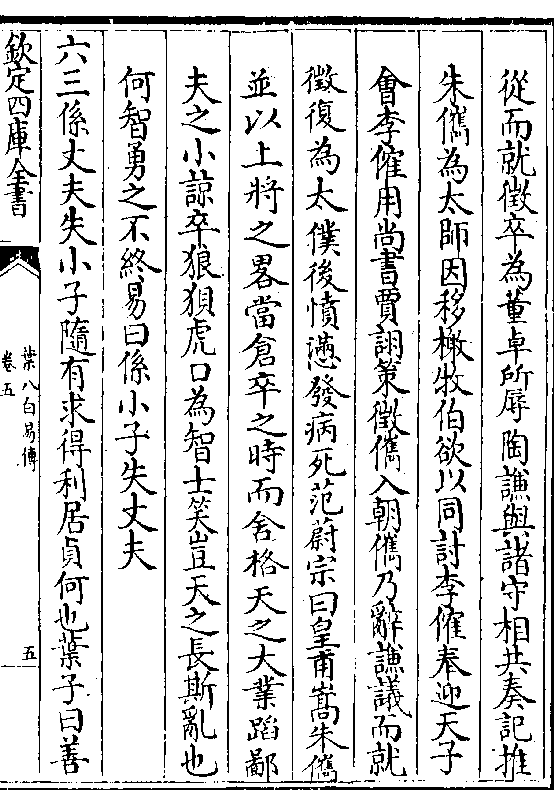 從而就徴卒為董卓所辱陶謙與諸守相共奏記推
朱儁為太師因移檄牧伯欲以同討李傕奉迎天子
會李傕用尚書賈詡策徴儁入朝儁乃辭謙議而就
徴復為太僕後憤懣發病死范蔚宗曰皇甫嵩朱儁
並以上將之畧當倉卒之時而舍格天之大業蹈鄙
夫之小諒卒狼狽虎口為智士笑豈天之長斯亂也
何智勇之不終易曰係小子失丈夫
六三係丈夫失小子隨有求得利居貞何也葉子曰善
欽定四庫全書
葉八白易傳
卷五
五